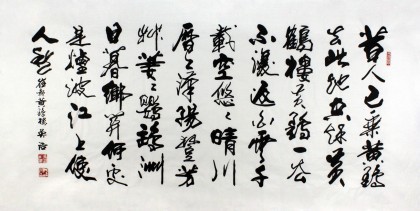 昔人已乘黄鶴
去此地空餘黄
鶴樓黄鶴一去
不復返白雲千
載空悠々晴川
歷々漢陽樹芳
艸萋々鸚鵡洲
日暮鄉關何處
是煙波江上使
人愁
崔颢黄鶴樓